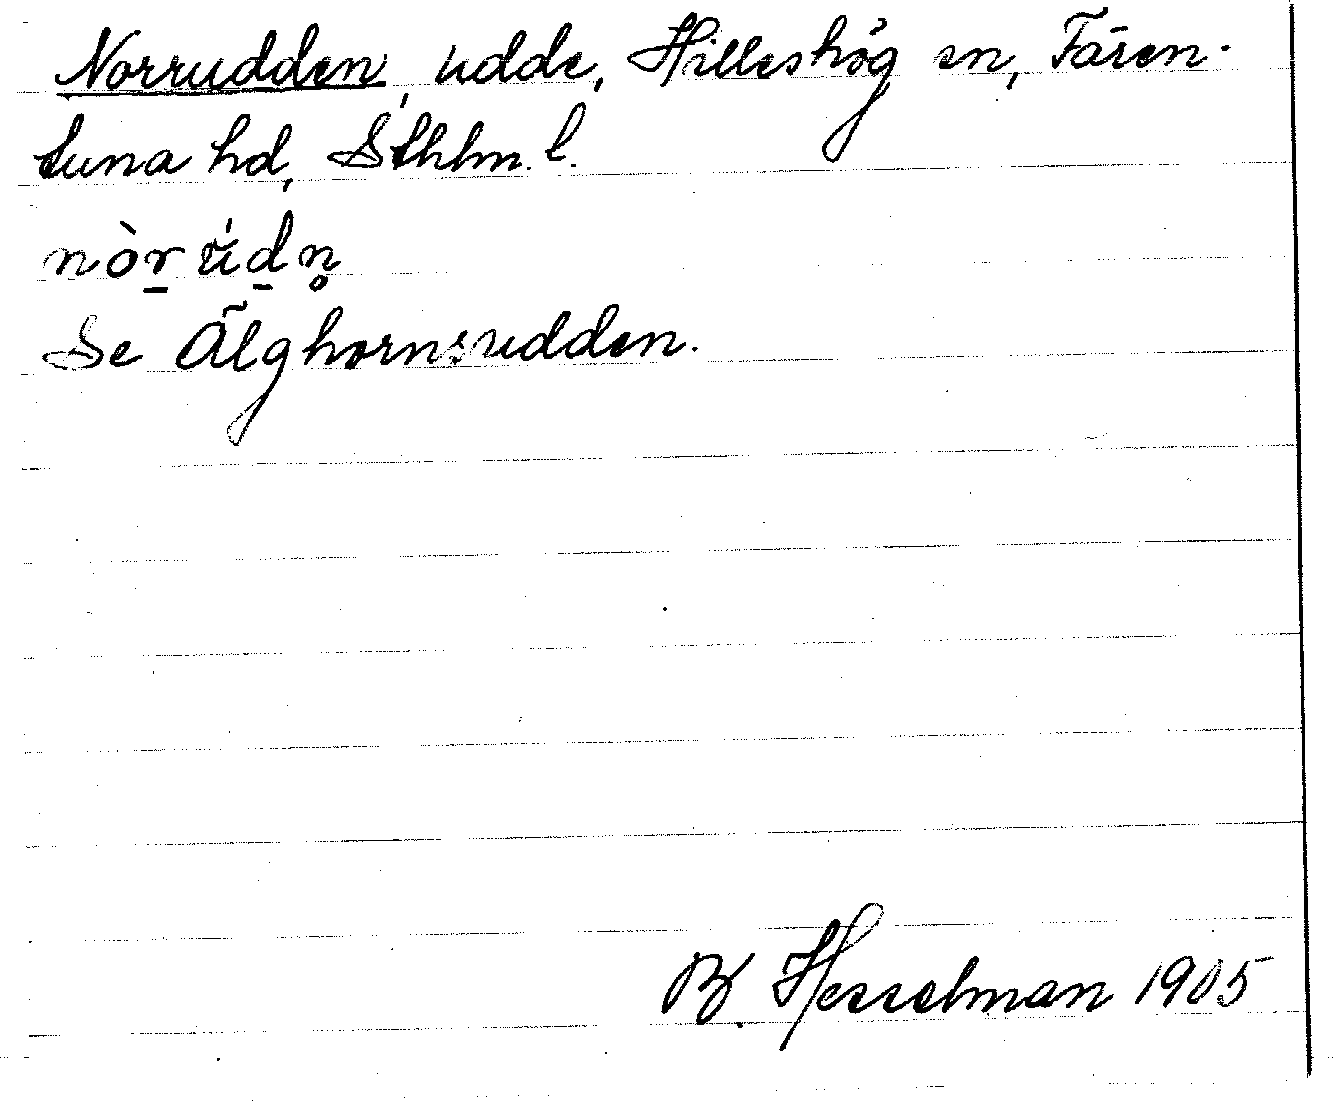 Norrudden, udde, Hilleshög sn, Fären-
tuna hd, Sthlm. l.
nòr̠ŭ́d̠n̥
Se Älghornsudden.
B. Hesselman 1905